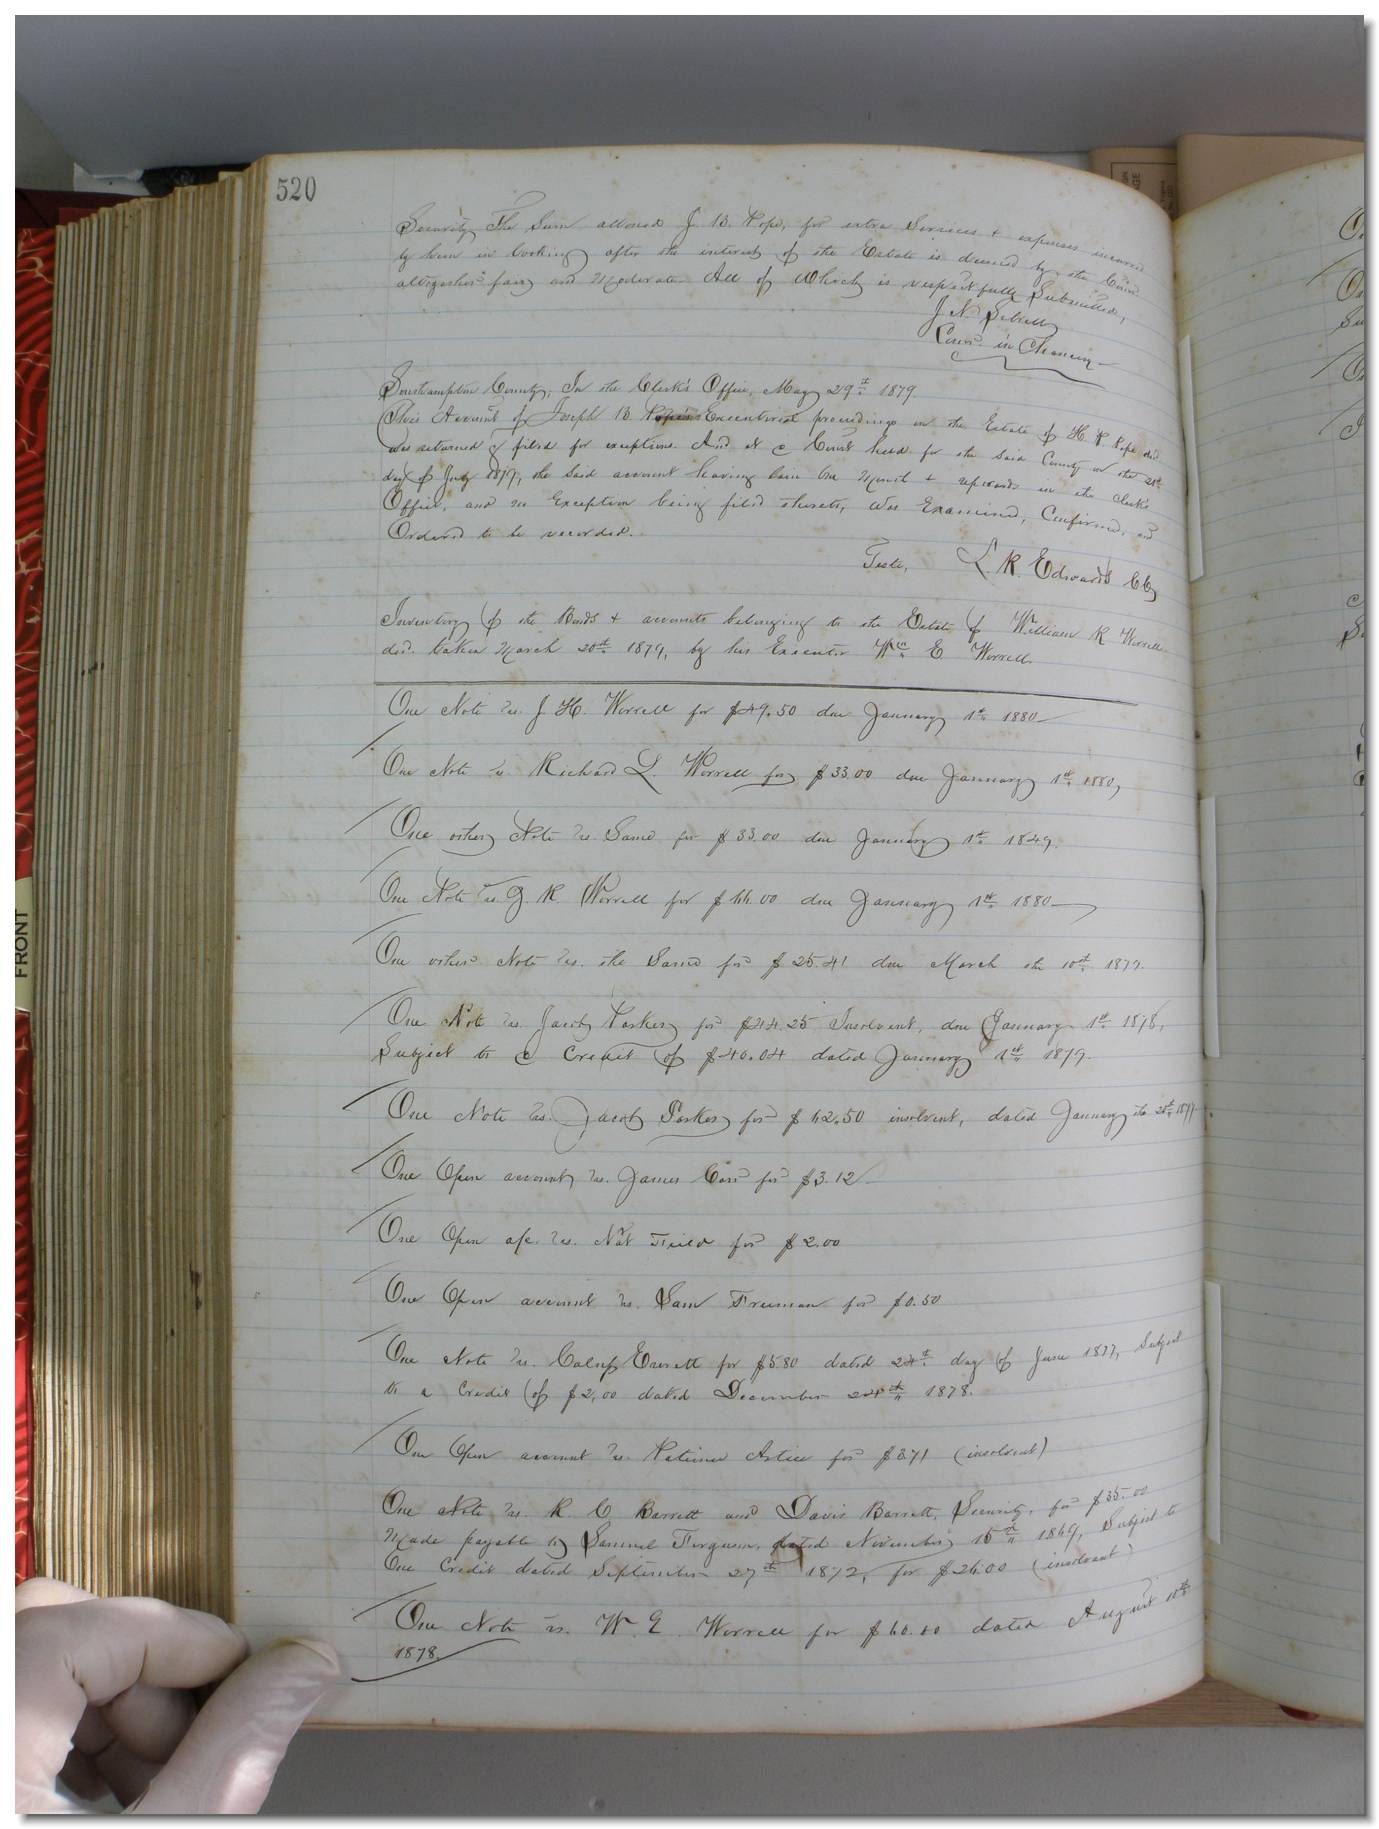 520
Security. The Sum allowed J. B. Pope, for extra Services & expenses incurred
by him in looking after the interest of the Estate is deemed by the Comr.
altogether fair and Moderate. All of Which is respectfully Submitted,
J. N. Sebrell
Comr. in Chancery
Southampton County, In the Clerk's Office, May 29th 1879.
This Account of Joseph B. Pope's Executorial proceedings on the Estate of H. P. Pope decd.
was returned & filed for exceptions. And at a Court held for the said County on the 21st
day of July 1879, the said account having lain One Month & upwards in the Clerk's
Office, and no Exception being filed thereto, was Examined, Confirmed, and
Ordered to be recorded.
Teste, L. R. Edwards CC
Inventory of the Bonds & accounts belonging to the Estate of William R Worrell
decd. taken March 20th 1879, by his Executor Wm E Worrell.
One Note vs. J H. Worrell for $49.50 due January 1st 1880
One Note vs. Richard L. Worrell for $33.00 due January 1st 1880,
One other Note vs. Same for $33.00 due January 1st 1849.
One Note vs. J. R. Worrell for $66.00 due January 1st 1880
One other Note vs. the Same for $25.41 due March the 10th 1879.
One Note vs. Jacob Parker for $44.25 Insolvent, due January 1st 1878,
Subject to a Credit of $40.04 dated January 1st 1879.
One Note vs. Jacob Parker for $62.50 insolvent, dated January the 20th 1877
One Open account vs. James Carr for $3.12
One Open a/c. vs. Nat Field for $2.00
One Open account vs. Sam Freeman for $0.50
One Note vs. Calup Everett for $5.80 dated 24th day of June 1877, Subject
to a Credit of $2,00 dated December 24th 1878.
One Open account vs. Artice for $3.71 (insolvent)
One Note vs. R. C. Barrett and Davis Barrett, Security, for $35.00
Made payable to Samuel Ferguson, dated November 15th 1869, Subject to
One Credit dated September 27th 1872, for $26.00 (insolvent)
One Note vs. W. E. Worrell for $60.00 dated August 10th
1878.
FRONT